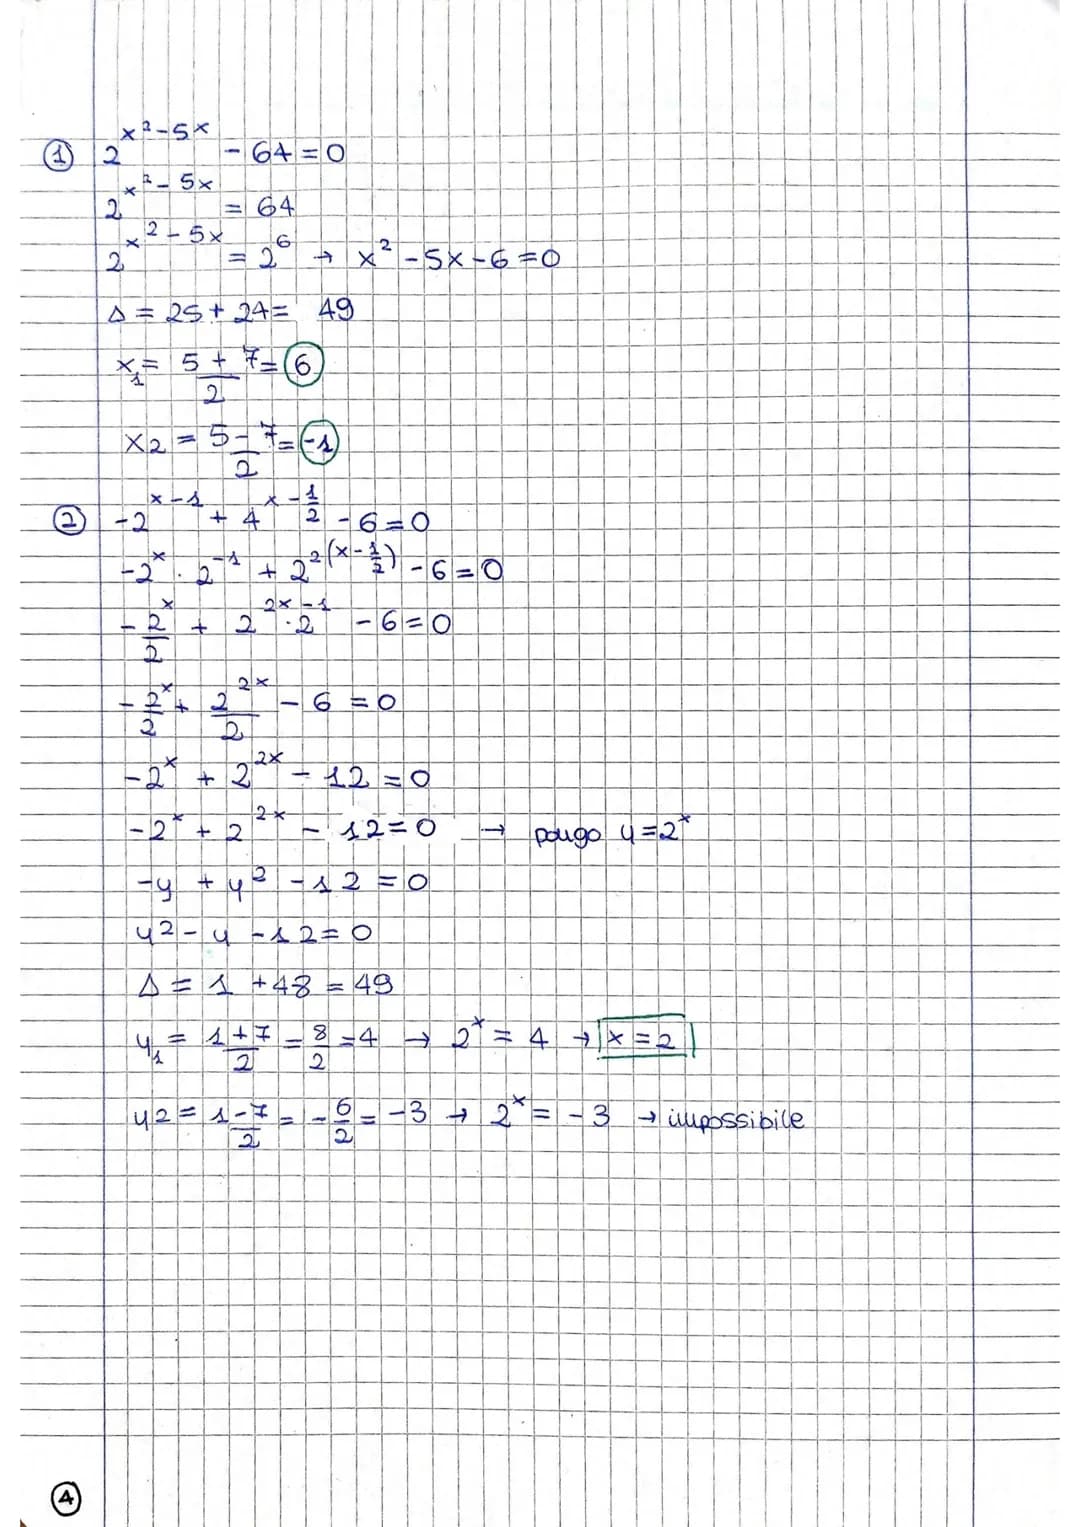 ① 2^(x²-5x) - 64 = 0
2^(x²-5x) = 64
2^(x²-5x) = 2⁶ → x² - 5x - 6 = 0
Δ = 25 + 24 = 49
x₁ = (5+7)/2 = 6
x₂ = (5-7)/2 = -1
② -2^(x-1) + 4^(x-1/2) - 6 = 0
-2^x · 2^(-1) + 2^(2(x-1/2)) - 6 = 0
-2^x/2 + 2^(2x) · 2^(-1) - 6 = 0
-2^x/2 + 2^(2x)/2 - 6 = 0
-2^x + 2^(2x) - 12 = 0
-2^x + 2^(2x) - 12 = 0 → pongo y = 2^x
-y + y² - 12 = 0
y² - y - 12 = 0
Δ = 1 + 48 = 49
y₁ = (1+7)/2 = 8/2 = 4 → 2^x = 4 → x = 2
y2 = (1-7)/2 = -6/2 = -3 → 2^x = -3 → impossibile
④